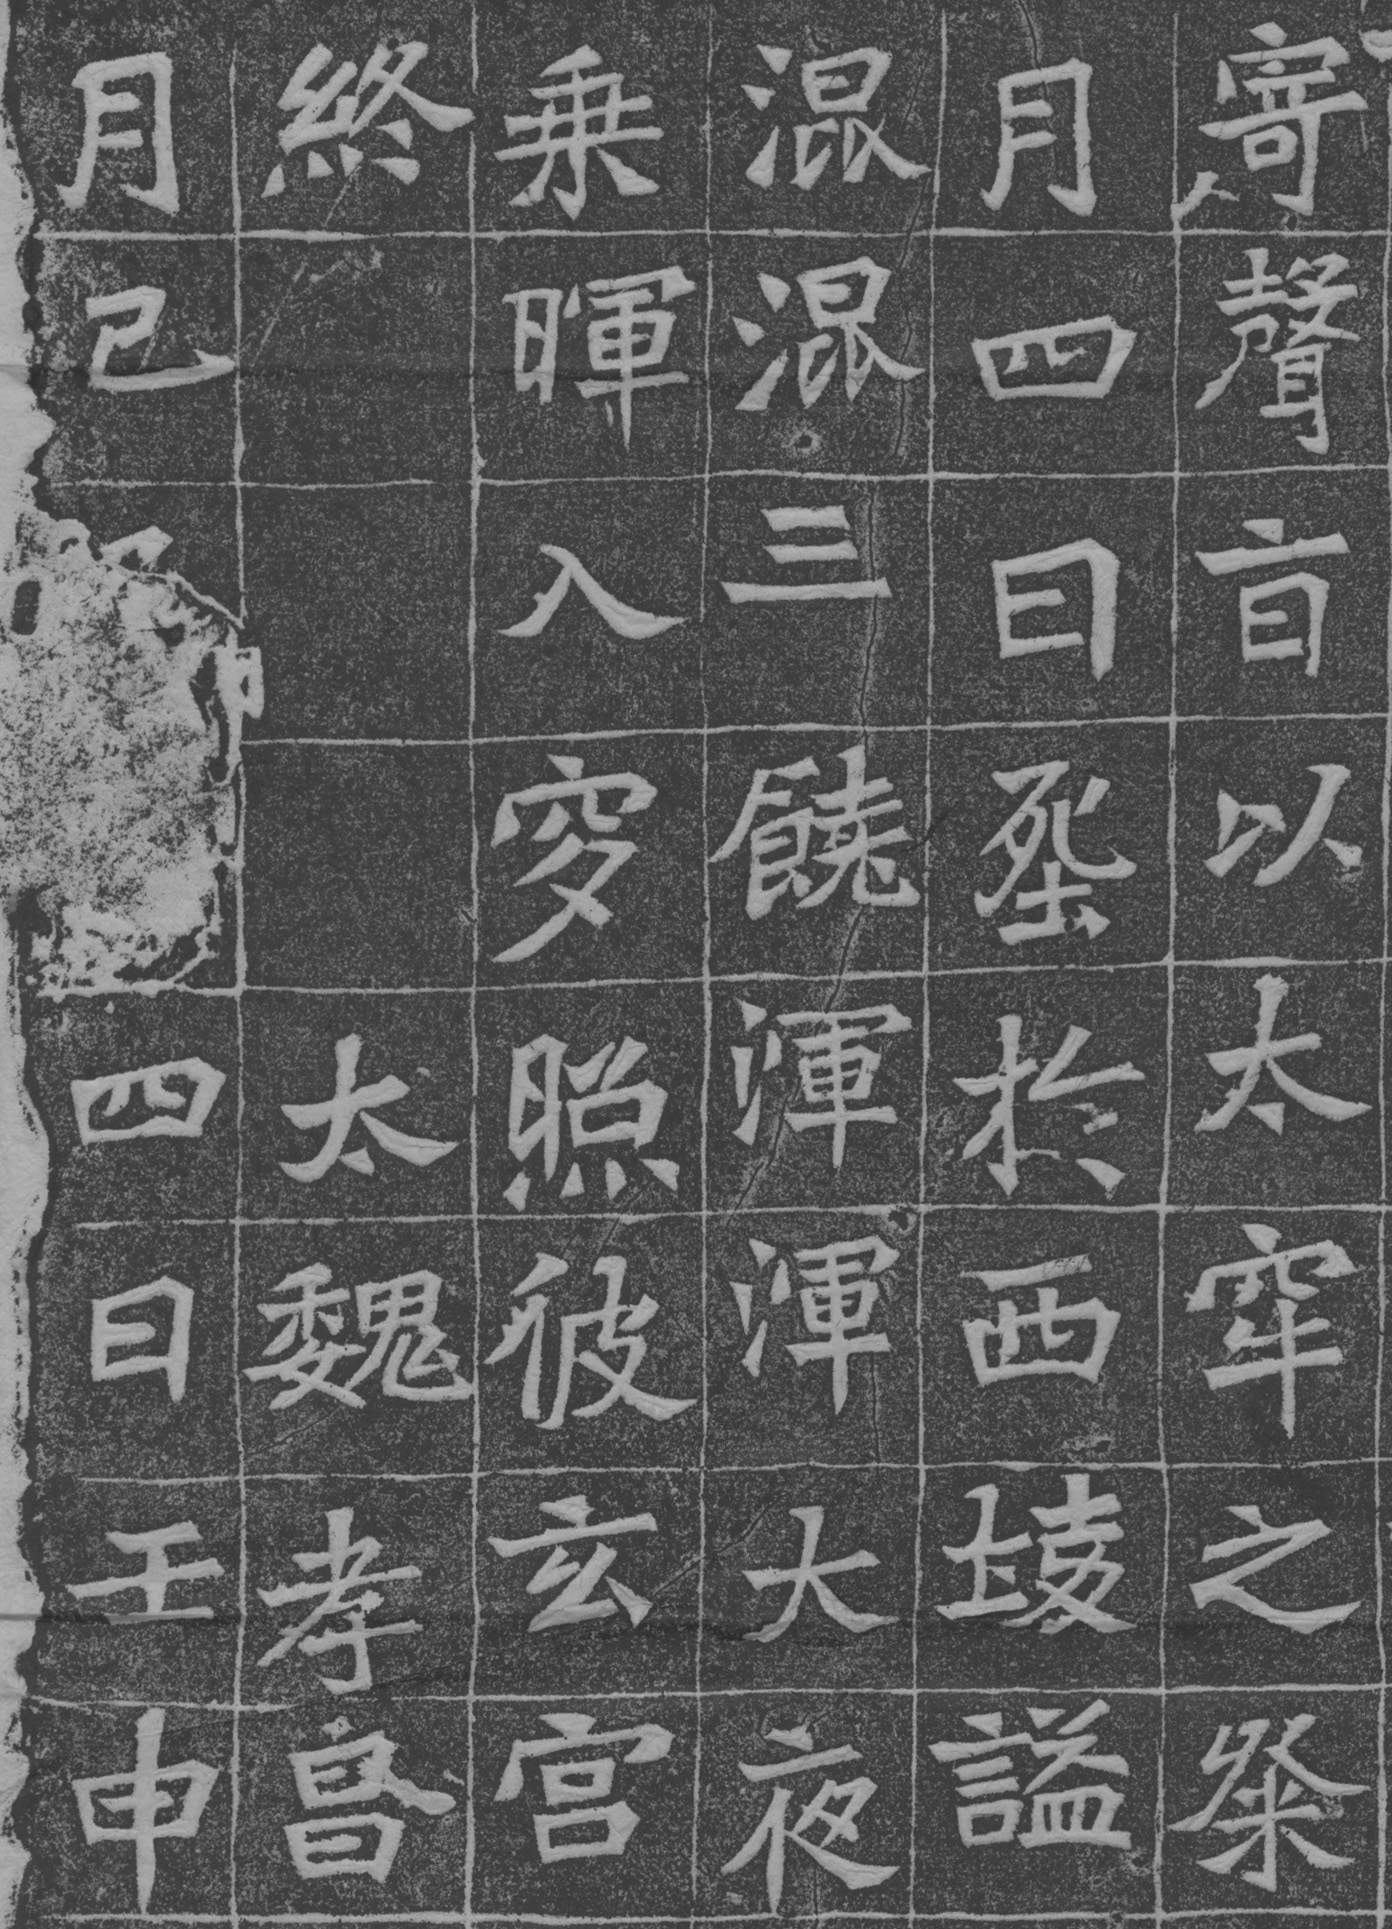 寄聲以太牢之祭
月四日葬於西堎謚
混混三饒渾渾大夜
乘暉入穸照彼玄宮
終 太魏孝昌
月己 四日壬申